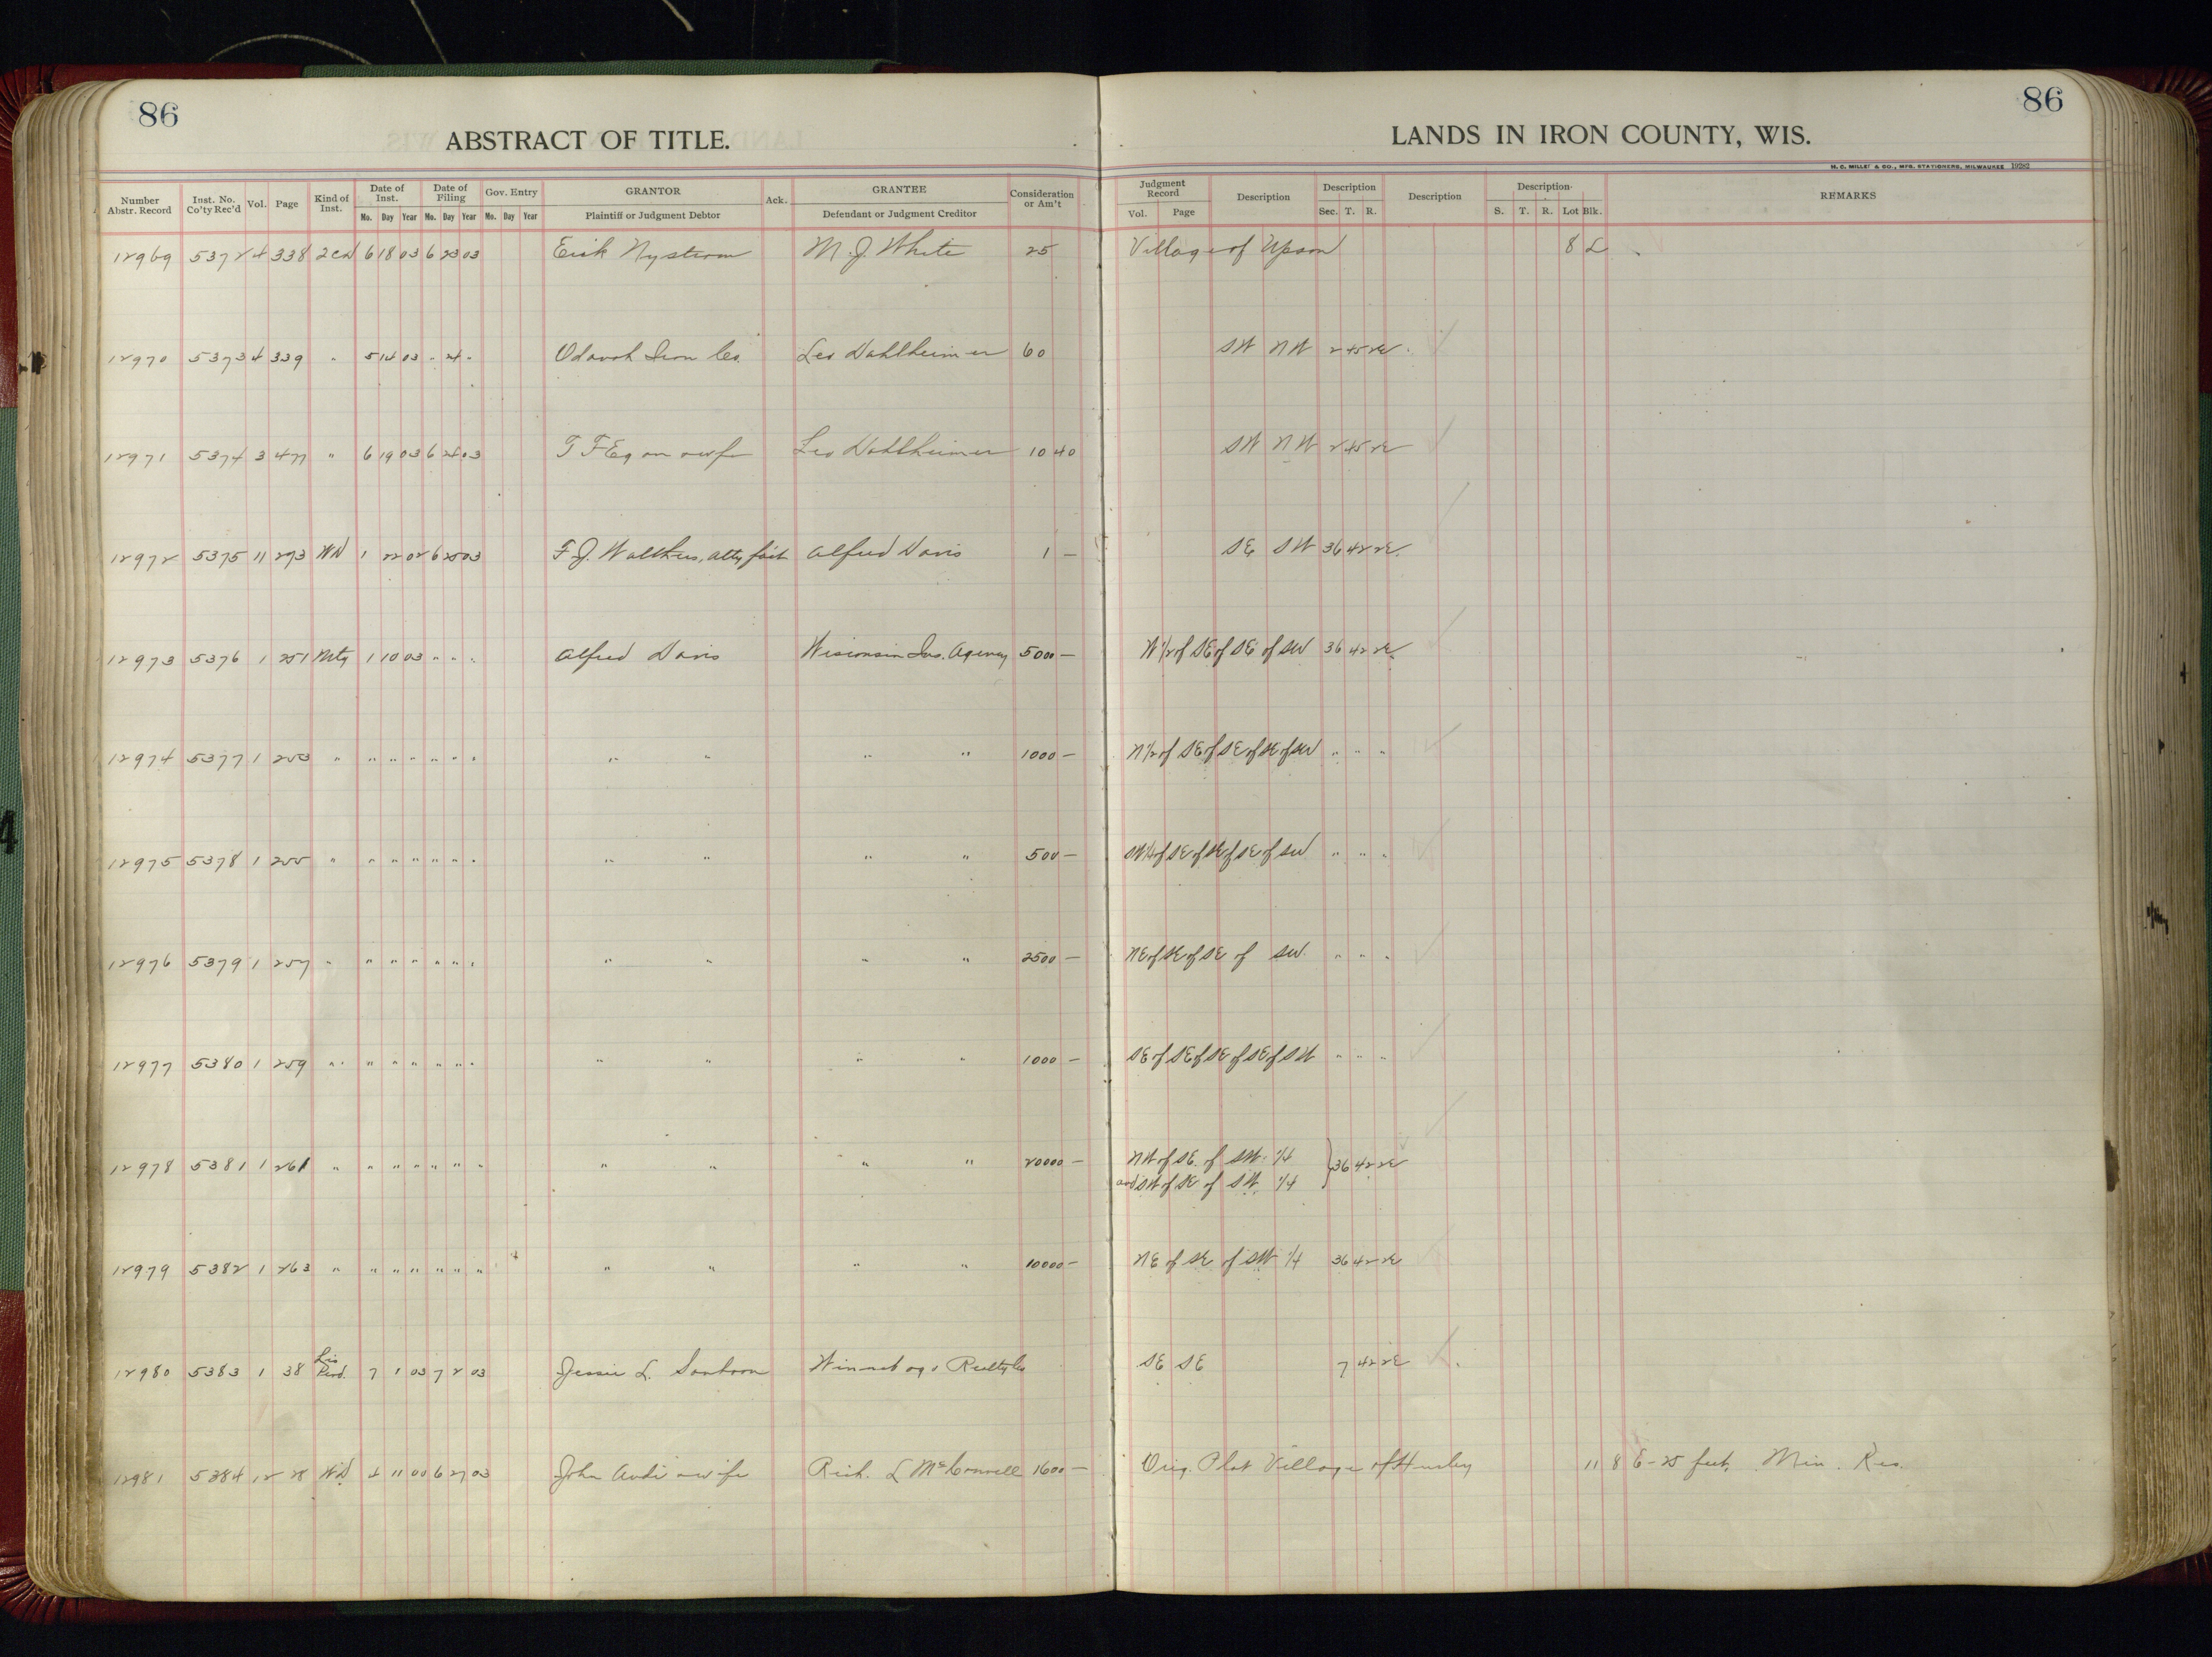 86
ABSTRACT OF TITLE.
86
LANDS IN IRON COUNTY, WIS.
H. C. MILLER & CO., MFG. STATIONERS, MILWAUKEE 19282
Number Abstr. Record | Inst. No. Co'ty Rec'd | Vol. | Page | Kind of Inst. | Date of Inst. Mo. Day Year | Date of Filing Mo. Day Year | Gov. Entry Mo. Day Year | GRANTOR Plaintiff or Judgment Debtor | Ack. | GRANTEE Defendant or Judgment Creditor | Consideration or Am't | Judgment Record Vol. Page | Description | Description Sec. T. R. | Description | Description S. T. R. Lot Blk. | REMARKS
12969 5372 4 338 2cd 6 18 03 6 23 03 Erik Nystrom M. J. White 25 Village of Upson 8 L
12970 5373 4 339 " 5 14 03 " 24 " Odanah Iron Co. Leo Dahlheimer 60 SW NW 2 45 2E
12971 5374 3 477 " 6 19 03 6 24 03 T F Egan awife Leo Dahlheimer 10 40 SW NW 2 45 2E
12972 5375 11 273 WD 1 22 02 6 25 03 F J. Walthers, atty fact Alfred Davis 1 — SE SW 36 42 2E
12973 5376 1 251 Mtg 1 10 03 " " " Alfred Davis Wisconsin Ins. Agency 5000 — N 1/2 of SE of SE of SW 36 42 2E
12974 5377 1 253 " " " " " " " " " " " 1000 — N 1/2 of SE of SE of SE of SW " " "
12975 5378 1 255 " " " " " " " " " " " 500 — SW 1/4 of SE of SE of SE of SW " " "
12976 5379 1 257 " " " " " " " " " " " 2500 — NE of SE of SE of SW. " " "
12977 5380 1 259 " " " " " " " " " " " 1000 — SE of SE of SE of SE of SW " " "
12978 5381 1 261 " " " " " " " " " " " 20000 — NW of SE. of SW. 1/4 } 36 42 2E
and SW of SE of SW. 1/4
12979 5382 1 263 " " " " " " " " " " " 10000 — NE of SE of SW 1/4 36 42 2E
12980 5383 1 38 Lis Pend. 7 1 03 7 2 03 Jessie L. Sanborn Winnebago Realty Co SE SE 7 42 2E
12981 5384 12 28 WD 11 00 6 27 03 John awife Rich. L McConnell 1600 — Orig. Plat Village of Hurley 11 8 E-25 feet, Min. Res.